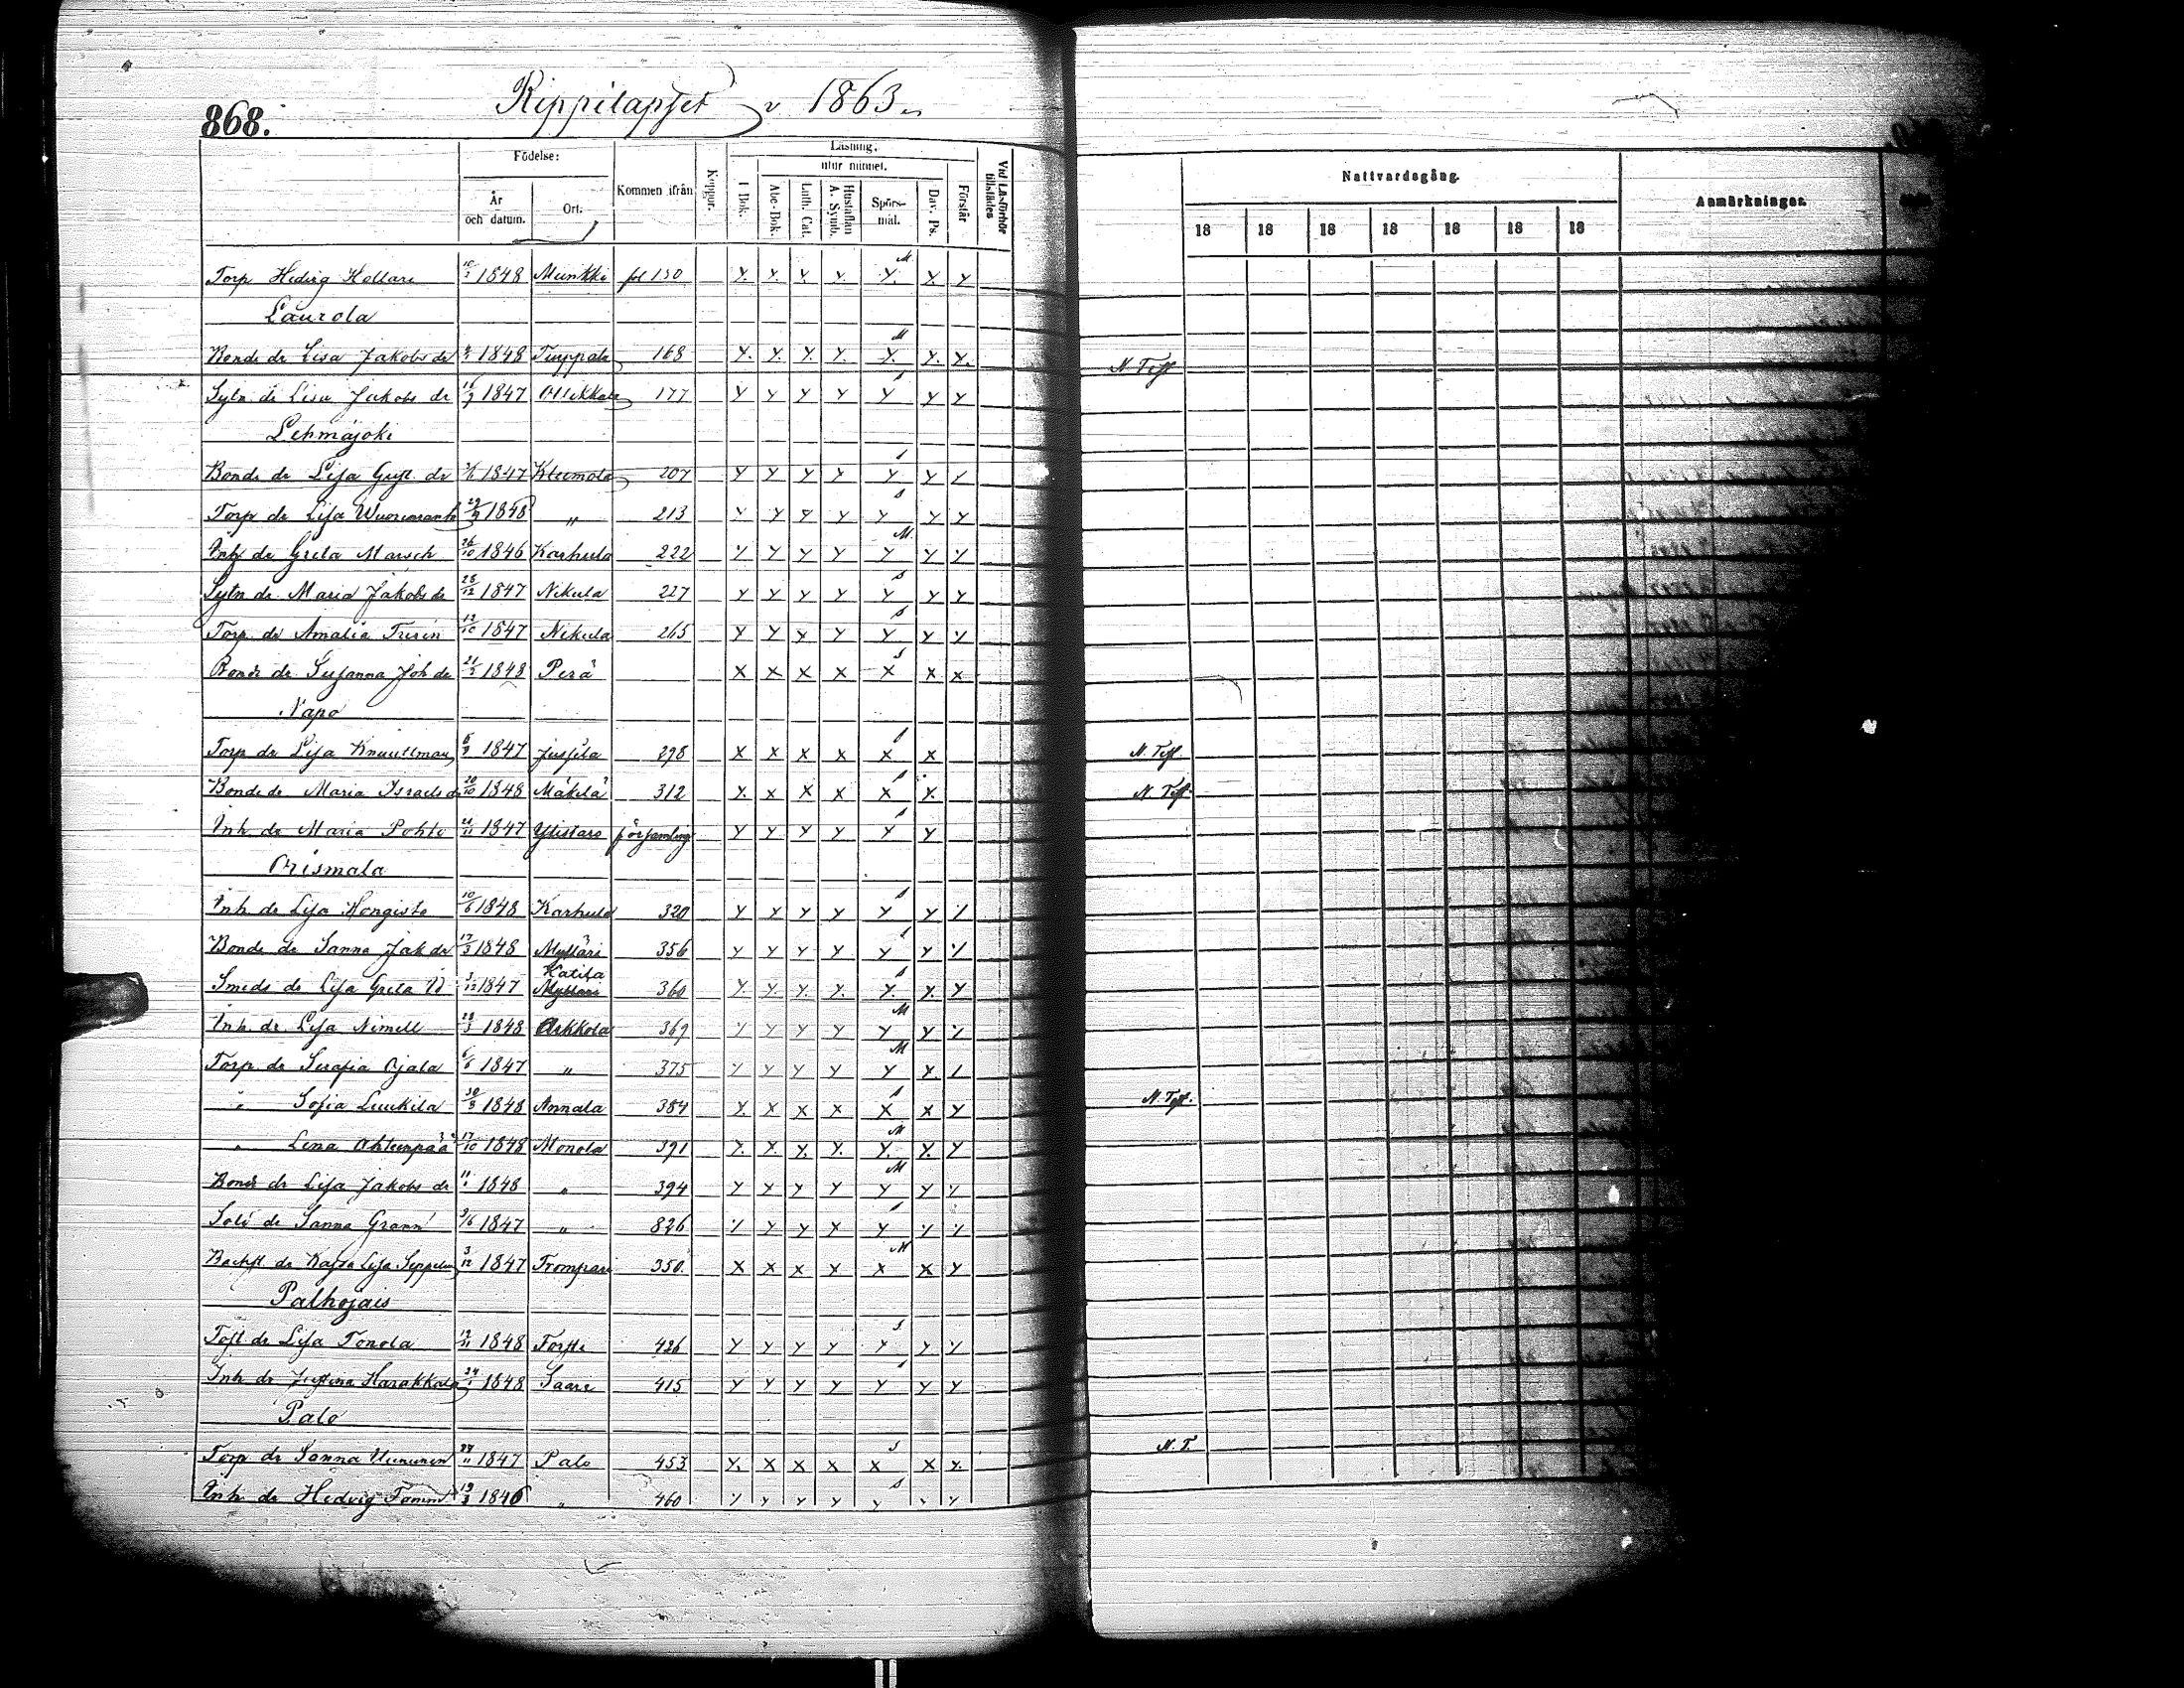 868.
Rippilapset v 1863
Födelse: Kommen ifrån Koppor. Läsning, utur minnet. Vid Läsförhör tillstädes
År och datum. Ort. I Bok. Abc-Bok. Luth. Cat. Hustaflan A. Symb. Spörsmål. Dav. Ps. Förstår
Nattvardsgång. Anmärkningar.
18 18 18 18 18 18 18
Torp Hedvig Hollari 1848 Munkki fol 150 Y. Y. Y. Y. M. Y. Y. Y
Laurola
Bonde dr Lisa Jakobs dr 1848 Turppala 168 Y. Y. Y. Y. M Y. Y. Y. N. Test
Sytn dr Lisa Jakobs dr 1847 Ollikkala 177 Y Y Y Y Y Y Y
Lehmäjoki
Bonde dr Lisa Gust. dr 1847 Kleemola 207 Y Y Y Y Y Y Y
Torp dr Lisa Wuorenranta 29/9 1848 " 213 Y Y Y Y Y Y Y
Inh dr Greta Marsch 26/10 1846 Karhula 222 Y Y Y Y M. Y Y Y
Sytn dr Maria Jakobs dr 28/12 1847 Nikula 227 Y Y Y Y Y Y Y
Torp dr Amalia Turin 12/10 1847 Nikula 265 Y Y Y Y Y Y Y
Bonde dr Susanna Joh dr 21/2 1848 Perä X X X X X X X
Napo
Torp dr Lisa Knuuttman 6/9 1847 Jussila 298 X X X X X X N. Test.
Bonde dr Maria Israels dr 20/10 1848 Mäkilä 312 Y. X X X X Y. N. Test.
Inh. dr Maria Pohto 1847 Ylistaro församling Y Y Y Y Y Y
Orismala
Inh. dr Lisa Hongisto 10/6 1848 Karhula 320 Y Y Y Y Y Y Y
Bonde dr Sanna Jak dr 17/3 1848 Myllari 356 Y Y Y Y Y Y Y
Katila
Smeds dr Lisa Greta 3/12 1847 Myllari 360 Y. Y. Y. Y. Y. Y. Y
Inh. dr. Lisa Nimell 28/3 1848 Arkkola 369 Y Y Y Y M Y Y Y
Torp dr Serafia Ojala 6/6 1847 " 375 Y Y Y Y M Y Y. Y
" Sofia Luukila 30/3 1848 Annala 384 Y. X X X X X Y N. Test.
" Lena Ahteenpää 17/10 1848 Monola 391 Y. Y. Y. Y. M Y. Y. Y
Bonde dr Lisa Jakobs dr 1848 " 394 Y Y Y Y M Y Y Y
Sold dr Sanna Grann 3/6 1847 " 826 Y Y Y X Y Y Y
Backst. dr Kajsa Lisa Seppelin 3/12 1847 Trompari 350. X X X X M X X Y
Palhojais
Toft dr Lisa Tonola 12/11 1848 Torsti 426 Y Y Y Y S Y Y Y
Inh dr Justina Harakkala 24/1 1848 Saari 415 Y Y Y Y Y Y Y
Palo
Torp dr Sanna 1847 Palo 453 Y. X X X S X X Y. N. T.
Inh. dr Hedvig Tommi 19/3 1846 " 460 Y Y Y Y Y Y Y